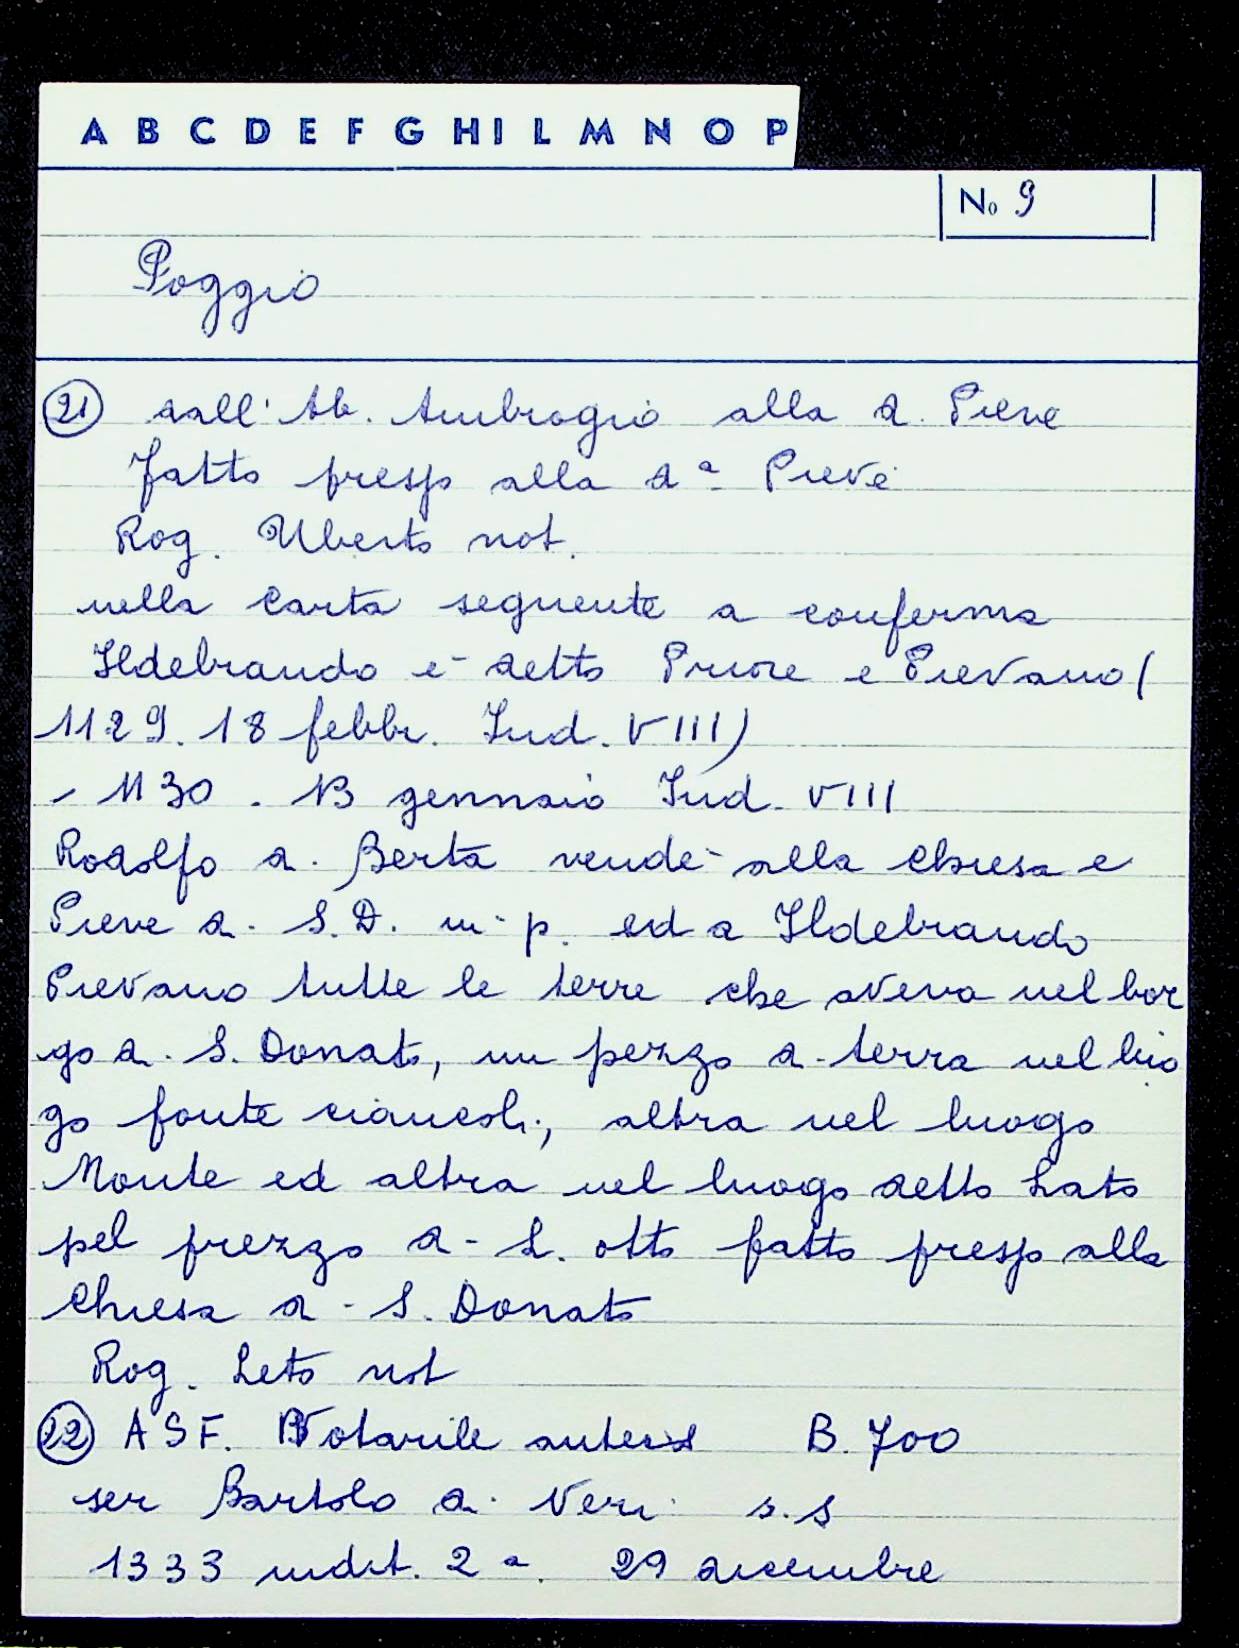 A B C D E F G H I L M N O P
No 9
Poggio
21 dall' Ab. Ambrogio alla d. Pieve
fatto presso alla dª Pieve
Rog. Uberto not.
nella carta seguente a conferma
Ildebrando è detto Priore e Pievano (
1129. 18 febbr. Ind. VIII)
- 1130. 13 gennaio Ind. VIII
Rodolfo di Berta vende alla Chiesa e
Pieve di S. D. in p. ed a Ildebrando
Pievano tutte le terre che aveva nel bor
go di S. Donato, un pezzo di terra nel luo
go fonte ciancoli, altra nel luogo
Monte ed altra nel luogo detto Lato
pel prezzo di L. otto fatto presso alla
Chiesa di S. Donato
Rog. Leto not
22 ASF. Notarile antecos B. 700
ser Bartolo di Neri s.s
1333 indit. 2ª. 29 dicembre